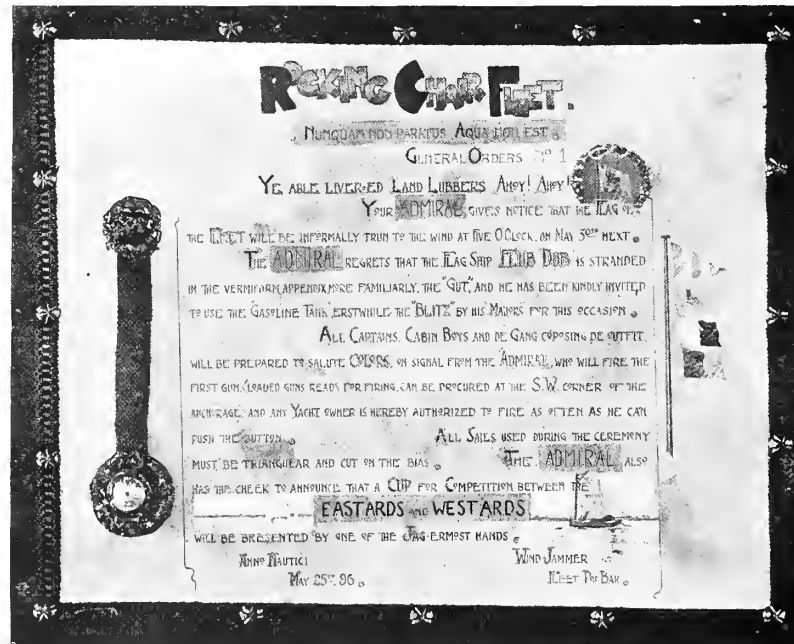 ROCKING CHAIR FLEET.
NUMQUAM NON PARATUS AQUA NON EST.
GENERAL ORDERS Nº 1
YE ABLE LIVER-ED LAND LUBBERS AHOY! AHOY!
YOUR ADMIRAL, GIVES NOTICE THAT THE FLAG OF
THE FLEET WILL BE INFORMALLY TRUN TO THE WIND AT FIVE O'CLOCK, ON MAY 30TH NEXT.
THE ADMIRAL REGRETS THAT THE FLAG SHIP FLUB DUB IS STRANDED
IN THE VERMIFORM APPENDIX, MORE FAMILIARLY, THE "GUT", AND HE HAS BEEN KINDLY INVITED
TO USE THE "GASOLINE TANK", ERSTWHILE THE "BLITZ" BY HIS MAJORS FOR THIS OCCASION.
ALL CAPTAINS, CABIN BOYS AND DE GANG COPOSING DE OUTFIT,
WILL BE PREPARED TO SALUTE COLORS, ON SIGNAL FROM THE ADMIRAL, WHO WILL FIRE THE
FIRST GUN, (LOADED GUNS READY FOR FIRING, CAN BE PROCURED AT THE S.W. CORNER OF THE
ANCHORAGE, AND ANY YACHT OWNER IS HEREBY AUTHORIZED TO FIRE AS OFTEN AS HE CAN
PUSH THE BUTTON. ALL SAILS USED DURING THE CEREMONY
MUST BE TRIANGULAR AND CUT ON THE BIAS. THE ADMIRAL ALSO
HAS THE CHECK TO ANNOUNCE THAT A CUP FOR COMPETITION BETWEEN THE
EASTARDS AND WESTARDS
WILL BE PRESENTED BY ONE OF THE JAG-ERMOST HANDS.
ANNO NAUTICI WIND JAMMER
MAY 25TH, 96. FLEET